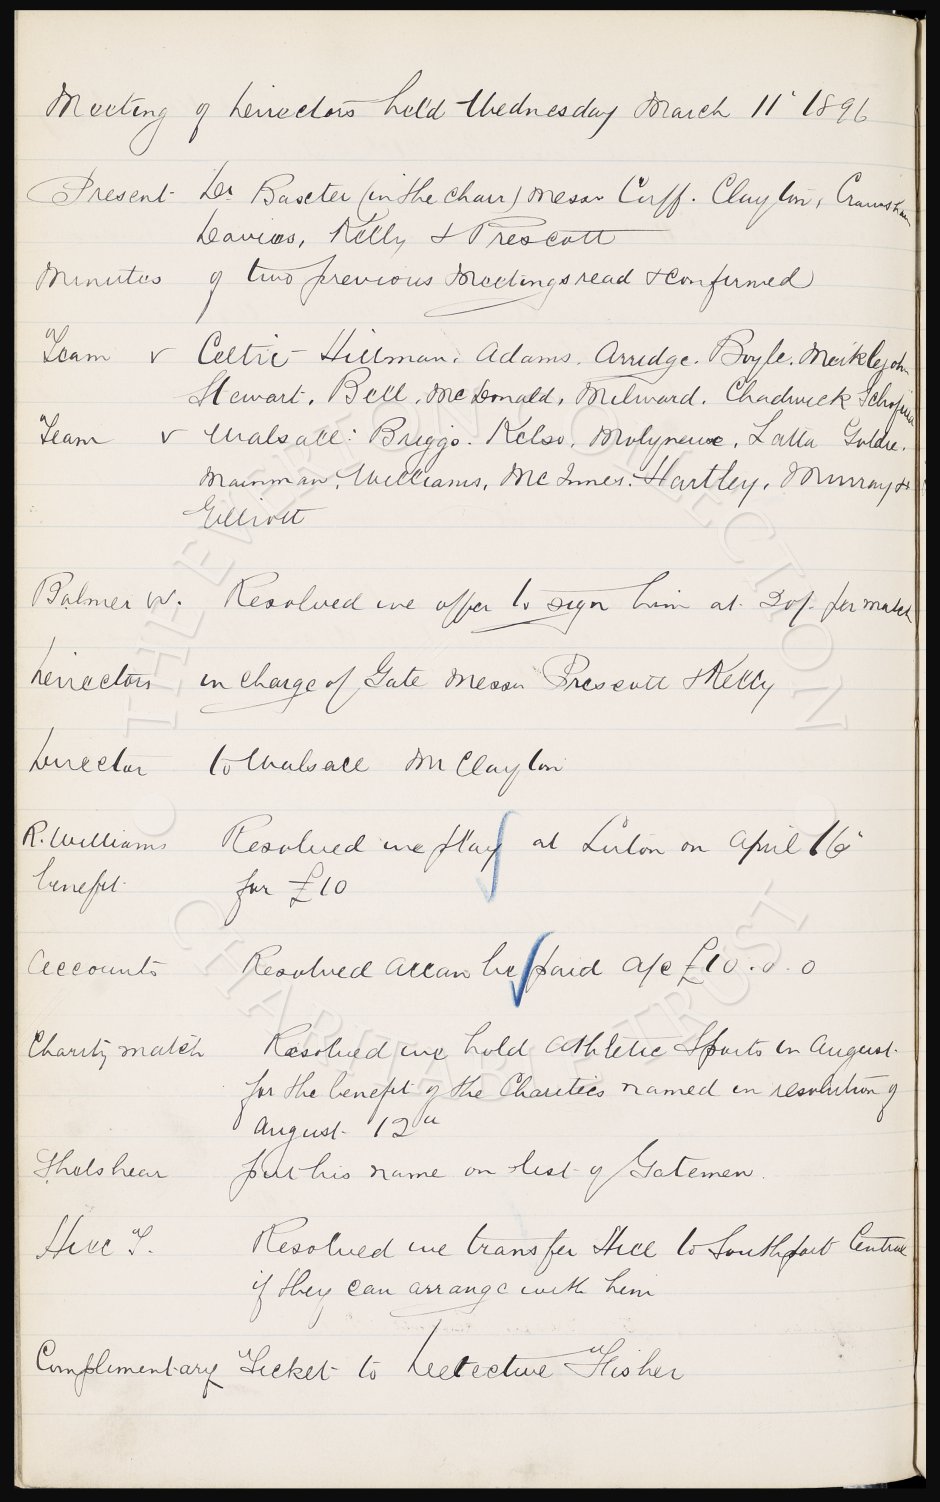 Meeting of Directors held Wednesday March 11' 1896
Present Dr Baxter (in the chair) Messrs Cuff. Clayton, Crawshaw
Davies, Kelly & Prescott
Minutes of two previous Meetings read & confirmed
Team v Celtic - Hillman. Adams. Arridge. Boyle. Meiklejohn
Stewart. Bell. McDonald, Milward. Chadwick Schofield
Team v Walsall: Briggs. Kelso. Molyneux. Latta Goldie.
Mainman. Williams. McInnes. Hartley. Murray &
Elliott
Balmer W. Resolved we offer to sign him at 20/- per match
Directors in charge of Gate Messrs Prescott & Kelly
Director to Walsall Mr Clayton
R. Williams Resolved we play at Luton on April 16'
benefit. for £10
Accounts Resolved be paid a/c £10.0.0
Charity match Resolved we hold Athletic Sports in August.
for the benefit of the Charities named in resolution of
August 12th
put his name on list of Gatemen.
Hill T. Resolved we transfer Hill to Southport Central
if they can arrange with him
Complimentary Ticket to Detective Fisher
THE EVERTON COLLECTION
CHARITABLE TRUST